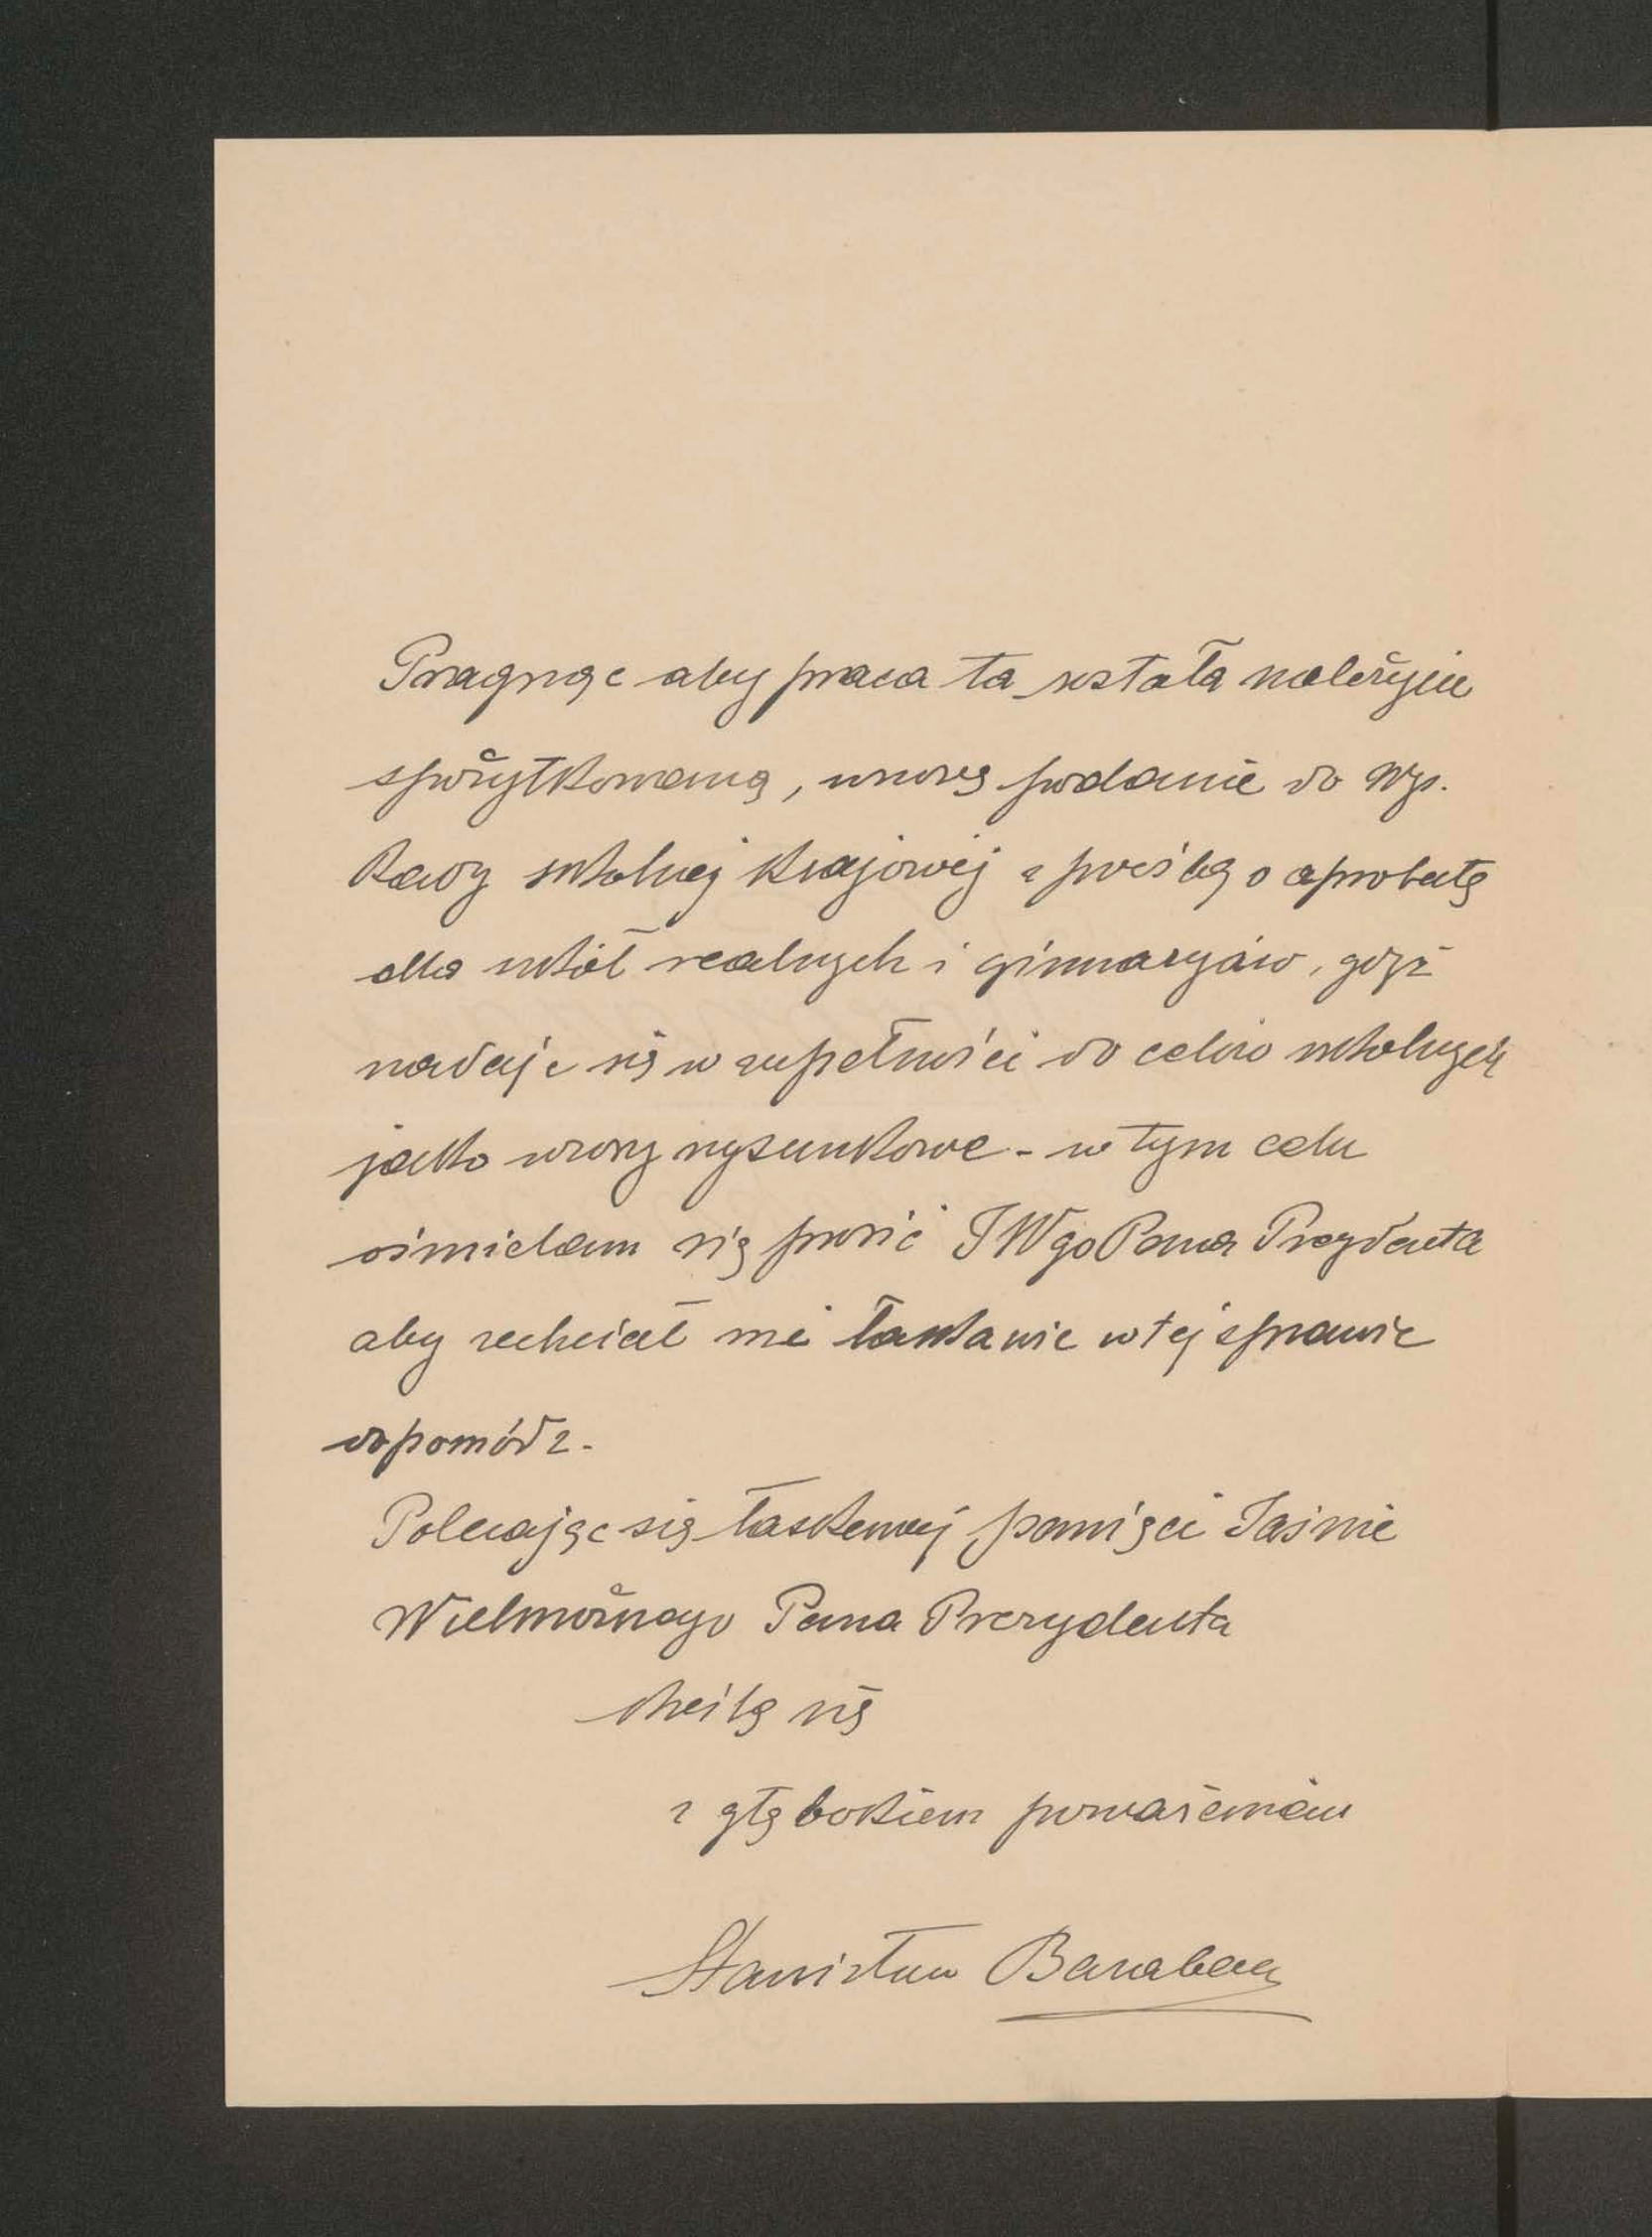 Pragnąc aby praca ta została należycie
spożytkowaną, wnoszę podanie do Wys.
Rady szkolnej krajowej z prośbą o aprobatę
dla szkół realnych i gimnazyów, gdyż
nadaje się w zupełności do celów szkolnych
jako wzory rysunkowe - w tym celu
ośmielam się prosić JWgo Pana Prezydenta
aby zechciał mi łaskawie w tej sprawie
dopomódz.
Polecając się łaskawej pamięci Jaśnie
Wielmożnego Pana Prezydenta
kreślę się
z głębokiem poważaniem
Stanisław Barabasz